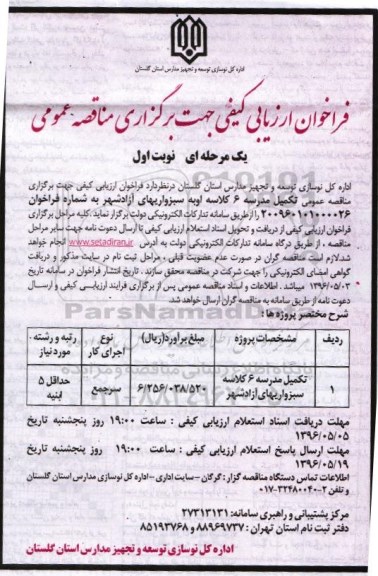 اداره کل نوسازی توسعه و تجهیز مدارس استان گلستان
فراخوان ارزیابی کیفی جهت برگزاری مناقصه عمومی
یک مرحله ای نوبت اول
اداره کل نوسازی توسعه و تجهیز مدارس استان گلستان درنظردارد فراخوان ارزیابی کیفی جهت برگزاری
مناقصه عمومی تکمیل مدرسه ۶ کلاسه اوبه سبزواریهای آزادشهر به شماره فراخوان
۲۰۰۹۶۰۱۰۱۰۰۰۰۲۶ را از طریق سامانه تدارکات الکترونیکی دولت برگزار نماید. کلیه مراحل برگزاری
فراخوان ارزیابی کیفی از دریافت و تحویل اسناد استعلام ارزیابی کیفی تا ارسال دعوت نامه جهت سایر مراحل
مناقصه ، از طریق درگاه سامانه تدارکات الکترونیکی دولت به آدرس www.setadiran.ir انجام خواهد
شد. لازم است مناقصه گران در صورت عدم عضویت قبلی ، مراحل ثبت نام در سایت مذکور و دریافت
گواهی امضای الکترونیکی را جهت شرکت در مناقصه محقق سازند . تاریخ انتشار فراخوان در سامانه تاریخ
۱۳۹۶/۰۵/۰۳ میباشد . اطلاعات و اسناد مناقصه عمومی پس از برگزاری فرآیند ارزیابی کیفی و ارسال
دعوت نامه از طریق سامانه به مناقصه گران ارسال خواهد شد.
شرح مختصر پروژه ها :
ردیف مشخصات پروژه مبلغ برآورد(ریال) نوع اجرای کار رتبه و رشته مورد نیاز
۱ تکمیل مدرسه ۶ کلاسه سبزواریهای آزادشهر ۶/۲۵۶/۰۳۸/۵۲۰ سرجمع حداقل ۵ ابنیه
مهلت دریافت اسناد استعلام ارزیابی کیفی : ساعت ۱۹:۰۰ روز پنجشنبه تاریخ
۱۳۹۶/۰۵/۰۵
مهلت ارسال پاسخ استعلام ارزیابی کیفی : ساعت ۱۹:۰۰ روز پنجشنبه تاریخ
۱۳۹۶/۰۵/۱۹
اطلاعات تماس دستگاه مناقصه گزار : گرگان - سایت اداری - اداره کل نوسازی مدارس استان گلستان
و تلفن ۲-۰۱۷-۳۲۴۸۰۰۴۰
مرکز پشتیبانی و راهبری سامانه: ۲۷۳۱۳۱۳۱
دفتر ثبت نام استان تهران : ۸۸۹۶۹۷۳۷ و ۸۵۱۹۳۷۶۸
اداره کل نوسازی توسعه و تجهیز مدارس استان گلستان